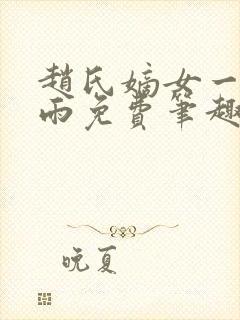 趙氏嫡女一
雨免費筆趣
晚夏